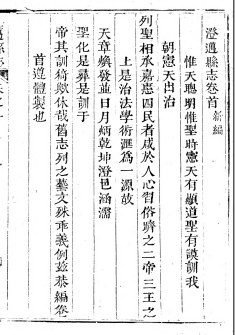 澄邁縣志卷首 新編
惟天聰明惟聖時憲天有顯道聖有謨訓我
朝憲天出治
列聖相承嘉惠四民者咸於人心習俗濟之二帝三王之
上是治法學術滙爲一源故
天章煥發並日月炳乾坤澄邑涵濡
聖化是彝是訓于
帝其訓猗歟休哉舊志列之藝文殊乖義例茲恭編卷
首遵體製也